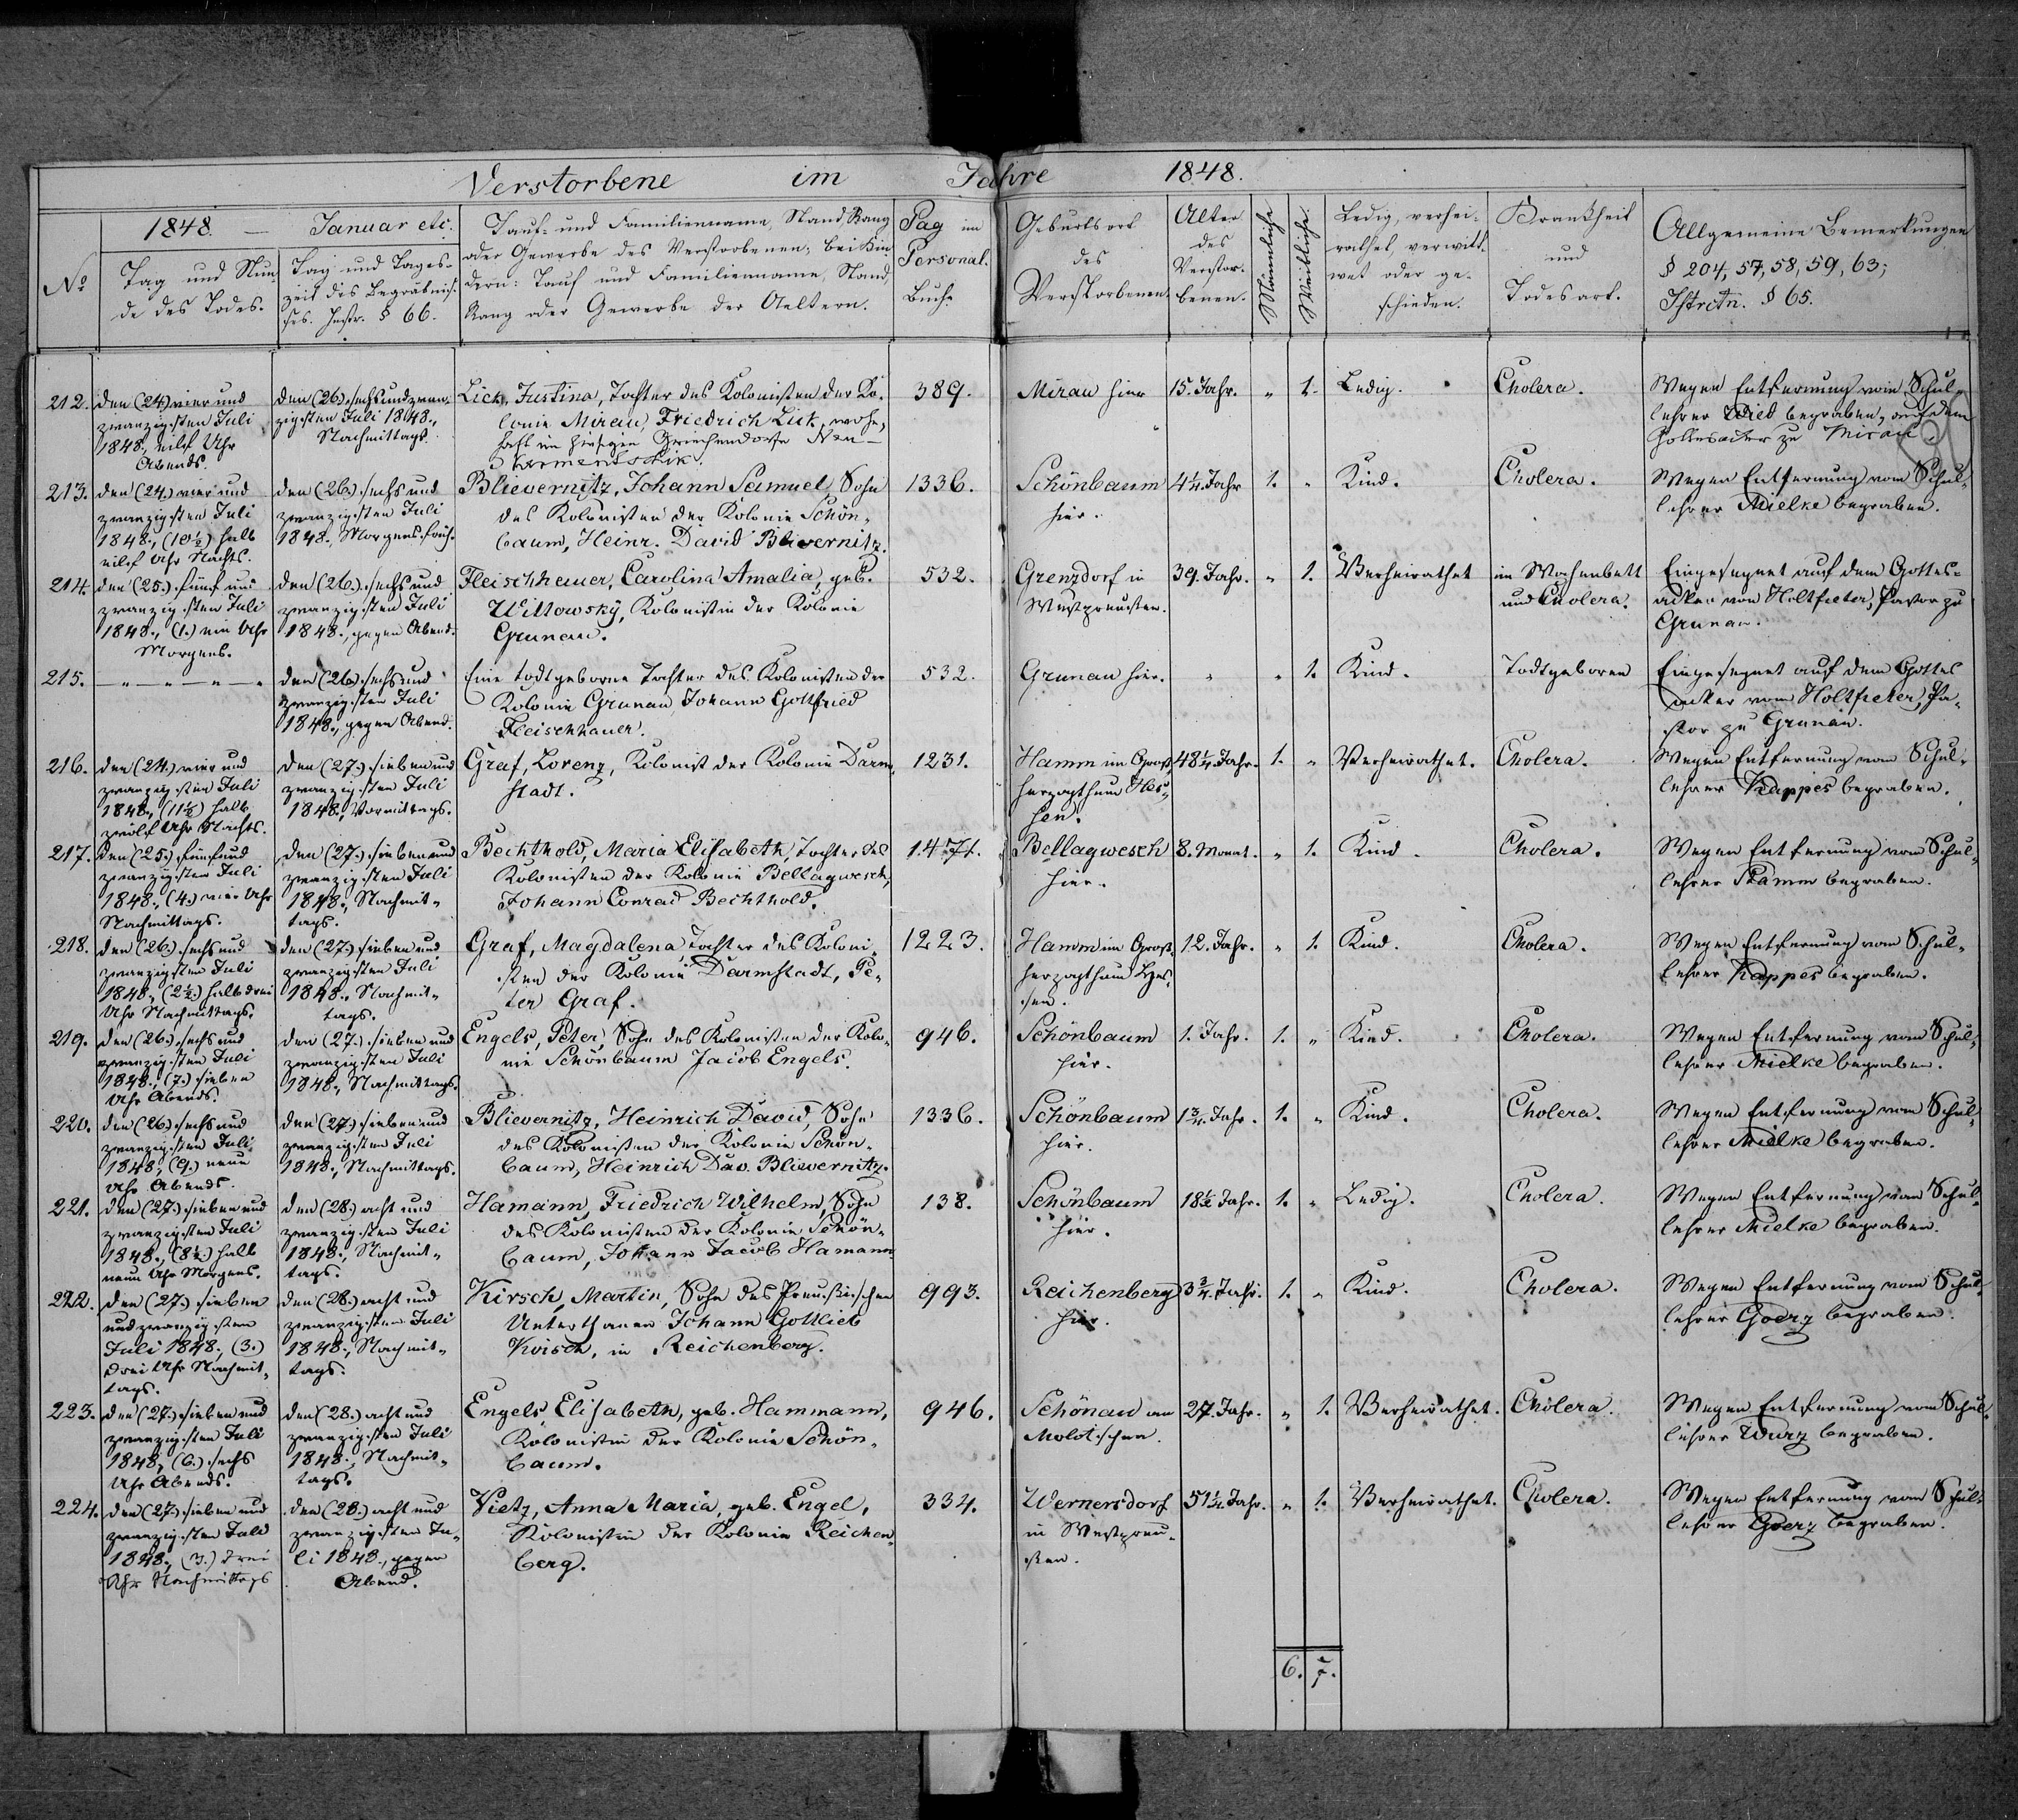 Verstorbene im Jahre 1848.
1848. — Januar etc.
No
Tag und Stun-
de des Todes.
Tag und Tages-
zeit des Begräbnis-
ses. Instr. § 66.
Tauf- und Familienname, Stand, Rang
oder Gewerbe des Verstorbenen; bei Kin-
dern: Tauf und Familienname, Stand,
Rang oder Gewerbe der Aeltern.
Pag im
Personal.
Buche
Geburtsort
des
Verstorbenen.
Alter
des
Verstor-
benen.
Männliche
Weibliche.
Ledig, verhei-
rathet, verwitt-
wet oder ge-
schieden.
Krankheit
und
Todesart.
Allgemeine Bemerkungen
§ 204, 57, 58, 59, 63;
Istrctn. § 65.
212.
den (24.) vier und
zwanzigsten Juli
1848., eilf Uhr
Abends.
den (26.) sechsundzwan-
zigsten Juli 1848.,
Nachmittags.
Lick, Justina, Tochter des Kolonisten der Ko-
lonie Mirau, Friedrich Lick, wohn-
haft im hiesigen Griechendorfe Neu-
Karmentschik.
389.
Mirau hier
15. Jahr.
„
1.
Ledig.
Cholera.
Wegen Entfernung vom Schul-
lehrer Wied begraben, auf dem
Gottesacker zu Mirau.
213.
den (24.) vier und
zwanzigsten Juli
1848., (10½) halb
eilf Uhr Nachts.
den (26.) sechs und
zwanzigsten Juli
1848., Morgens früh.
Blievernitz, Johann Samuel, Sohn
des Kolonisten der Kolonie Schön-
baum, Heinr. David Blievernitz.
1336.
Schönbaum
hier.
4¼. Jahr
1.
„
Kind.
Cholera.
Wegen Entfernung vom Schul-
lehrer Mielke begraben.
214.
den (25.) fünf und
zwanzigsten Juli
1848., (1.) ein Uhr
Morgens.
den (26.) sechs und
zwanzigsten Juli
1848., gegen Abend.
Fleischhauer, Carolina Amalia, geb.
Willowsky, Kolonistin der Kolonie
Grunau.
532.
Grenzdorf in
Westpreußen.
39. Jahr.
„
1.
Verheirathet
im Wochenbett
und Cholera.
Eingesegnet auf dem Gottes-
acker von Holtfreter, Pastor zu
Grunau.
215.
— „ — „ — „ — „
den (26.) sechs und
zwanzigsten Juli
1848., gegen Abend.
Eine todtgeborne Tochter des Kolonisten der
Kolonie Grunau, Johann Gottfried
Fleischhauer.
532.
Grunau hier.
„
„
1.
Kind.
Todtgeboren
Eingesegnet auf dem Gottes
acker vom Holtfreter, Pa-
stor zu Grunau.
216.
den (24.) vier und
zwanzigsten Juli
1848., (11½) halb
zwölf Uhr Nachts.
den (27.) sieben und
zwanzigsten Juli
1848., Vormittags.
Graf, Lorenz, Kolonist der Kolonie Darm-
stadt.
1231.
Hamm im Groß-
herzogthum Hes-
sen.
48¼. Jahr.
1.
„
Verheirathet.
Cholera.
Wegen Entfernung vom Schul-
lehrer Kappes begraben.
217.
den (25.) fünf und
zwanzigsten Juli
1848., (4.) vier Uhr
Nachmittags.
den (27.) sieben und
zwanzigsten Juli
1848., Nachmit-
tags.
Bechthold, Maria Elisabeth, Tochter des
Kolonisten der Kolonie Bellagwesch,
Johann Conrad Bechthold.
1471.
Bellagwesch
hier.
8. Monat.
„
1.
Kind.
Cholera.
Wegen Entfernung vom Schul-
lehrer Stamm begraben.
218.
den (26.) sechs und
zwanzigsten Juli
1848., (2½.) halb drei
Uhr Nachmittags.
den (27.) sieben und
zwanzigsten Juli
1848., Nachmit-
tags.
Graf, Magdalena, Tochter des Koloni-
sten der Kolonie Darmstadt, Pe-
ter Graf.
1223.
Hamm im Groß-
herzogthum Hes-
sen.
12. Jahr.
„
1.
Kind.
Cholera.
Wegen Entfernung vom Schul-
lehrer Kappes begraben.
219.
den (26.) sechs und
zwanzigsten Juli
1848., (7.) sieben
Uhr Abends.
den (27.) sieben und
zwanzigsten Juli
1848., Nachmittags.
Engels, Peter, Sohn des Kolonisten der Kolo-
nie Schönbaum Jacob Engels.
946.
Schönbaum
hier.
1. Jahr.
1.
„
Kind.
Cholera.
Wegen Entfernung vom Schul-
lehrer Mielke begraben.
220.
den (26.) sechs und
zwanzigsten Juli
1848., (9.) neun
Uhr Abends.
den (27.) sieben und
zwanzigsten Juli
1848., Nachmittags.
Blievernitz, Heinrich David, Sohn
des Kolonisten der Kolonie Schön-
baum, Heinrich Dav. Blievernitz.
1336.
Schönbaum
hier.
1¾. Jahr.
1.
„
Kind.
Cholera.
Wegen Entfernung vom Schul-
lehrer Mielke begraben.
221.
den (27.) sieben und
zwanzigsten Juli
1848., (8½.) halb
neun Uhr Morgens.
den (28.) acht und
zwanzigsten Juli
1848., Nachmit-
tags.
Hamann, Friedrich Wilhelm, Sohn
des Kolonisten der Kolonie Schön-
baum, Johann Jacob Hamann
138.
Schönbaum
hier.
18½ Jahr.
1.
„
Ledig.
Cholera.
Wegen Entfernung vom Schul-
lehrer Mielke begraben.
222.
den (27.) sieben
und zwanzigsten
Juli 1848., (3.)
drei Uhr Nachmit-
tags.
den (28.) acht und
zwanzigsten Juli
1848., Nachmit-
tags.
Kirsch, Martin, Sohn des Preußischen
Unterthanen Johann Gottlieb
Kirsch, in Reichenberg.
993.
Reichenberg
hier.
3¾. Jahr.
1.
„
Kind.
Cholera.
Wegen Entfernung vom Schul-
lehrer Goerz begraben.
223.
den (27.) sieben und
zwanzigsten Juli
1848., (6.) sechs
Uhr Abends.
den (28.) acht und
zwanzigsten Juli
1848., Nachmit-
tags.
Engels, Elisabeth, geb. Hammann,
Kolonistin der Kolonie Schön-
baum.
946.
Schönau am
Molotschna.
27. Jahr.
„
1.
Verheirathet.
Cholera.
Wegen Entfernung vom Schul-
lehrer Wurz begraben.
224.
den (27.) sieben und
zwanzigsten Juli
1848., (3.) drei
Uhr Nachmittags
den (28.) acht und
zwanzigsten Ju-
li 1848., gegen
Abend.
Vietz, Anna Maria, geb. Engel,
Kolonistin der Kolonie Reichen-
berg.
334.
Wernersdorf
in Westpreu-
ßen.
51½ Jahr.
„
1.
Verheirathet.
Cholera.
Wegen Entfernung vom Schul-
lehrer Goerz begraben.
6. 7.